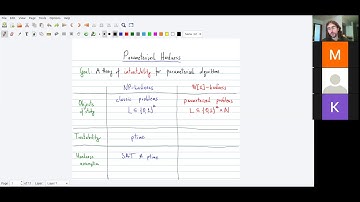 Parameterized Hardness
Goal: A theory of intractability for parameterized algorithms
NP-hardness
W[1]-hardness
Objects of study
classic problems
L ⊆ {0,1}*
parameterized problems
L ⊆ {0,1}* × N
Tractability:
ptime
Hardness assumption
SAT ∉ ptime
M
K